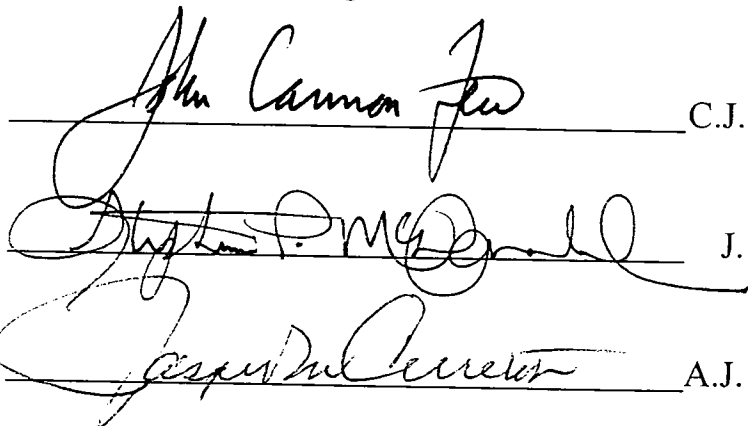 John Cannon Few C.J.
Stephen P. McDonald J.
Jasper M. Cureton A.J.